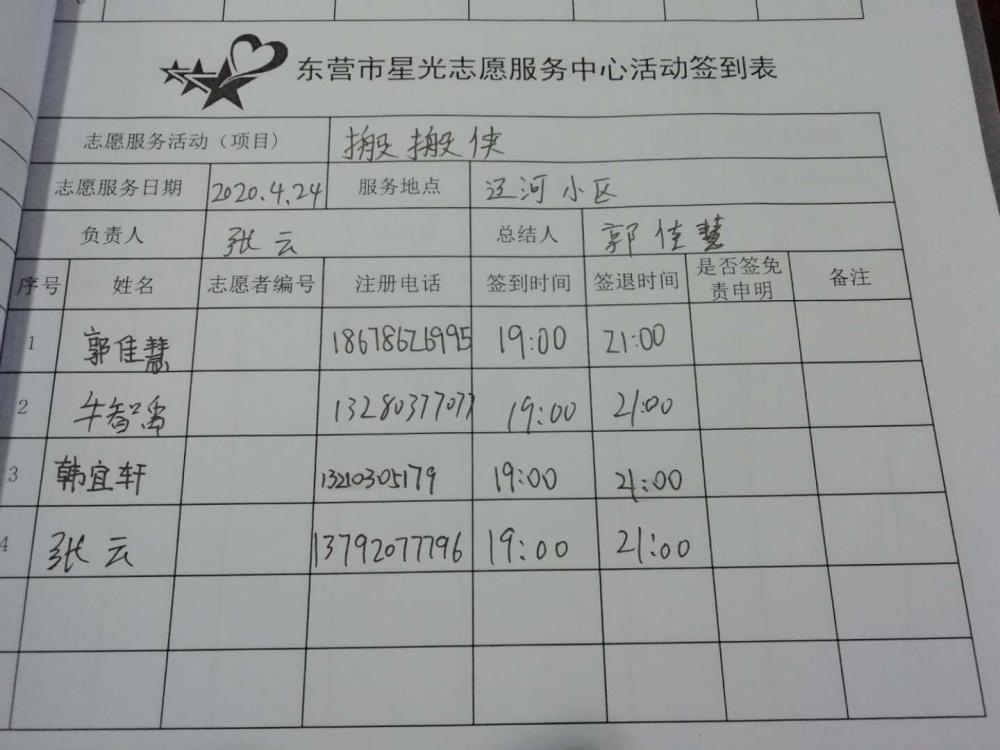 东营市星光志愿服务中心活动签到表
志愿服务活动（项目） 搬搬侠
志愿服务日期 2020.4.24 服务地点 辽河小区
负责人 张云 总结人 郭佳慧
序号 姓名 志愿者编号 注册电话 签到时间 签退时间 是否签免责申明 备注
1 郭佳慧 18678626995 19:00 21:00
2 牛智 13280377077 19:00 21:00
3 韩宜轩 13210305179 19:00 21:00
4 张云 13792077796 19:00 21:00